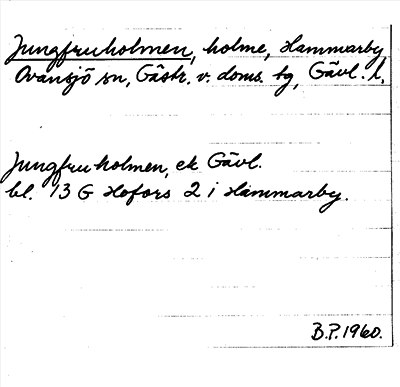 Jungfruholmen, holme, Hammarby,
Ovansjö sn, Gästr. v. doms. tg, Gävl. l.
Jungfruholmen, ek Gävl.
bl. 13 G Hofors 2 i Hammarby.
B.P. 1960.